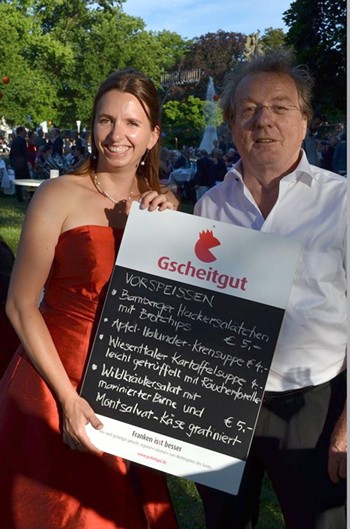 Gscheitgut
VORSPEISEN
• Bamberger Hackersalätchen
mit Brotchips € 5,-
• Apfel-Holunder-Krensuppe € 4,-
• Wiesenttaler Kartoffelsuppe 4,-
leicht getrüffelt mit Räucherforelle
• Wildkräutersalat mit
marinierter Birne und € 5,-
Montsalvat-Käse gratiniert
Franken isst besser
www.gscheitgut.de